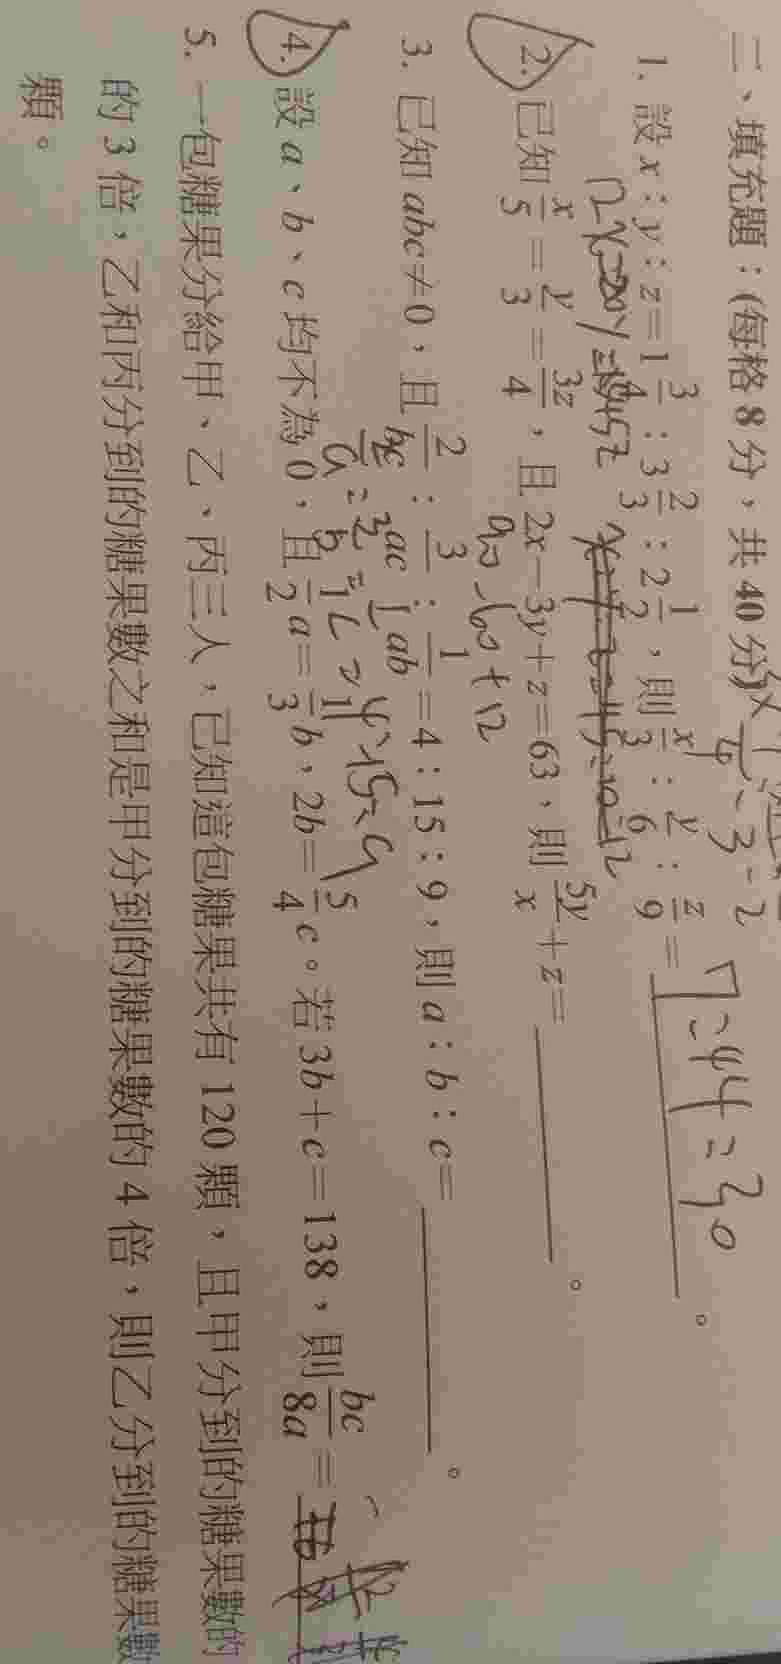 二、填充題：(每格 8 分，共 40 分)
1. 設 x：y：z＝1 3/4：3 2/3：2 1/2，則 x/3：y/6：z/9＝7：44：30。
2. 已知 x/5＝y/3＝3z/4，且 2x－3y＋z＝63，則 5y/x＋z＝____。
90－60＋12
3. 已知 abc≠0，且 2/bc：3/ac：1/ab＝4：15：9，則 a：b：c＝____。
4. 設 a、b、c 均不為 0，且 1/2 a＝1/3 b，2b＝5/4 c。若 3b＋c＝138，則 bc/8a＝
5. 一包糖果分給甲、乙、丙三人，已知這包糖果共有 120 顆，且甲分到的糖果數的
的 3 倍，乙和丙分到的糖果數之和是甲分到的糖果數的 4 倍，則乙分到的糖果數
顆。